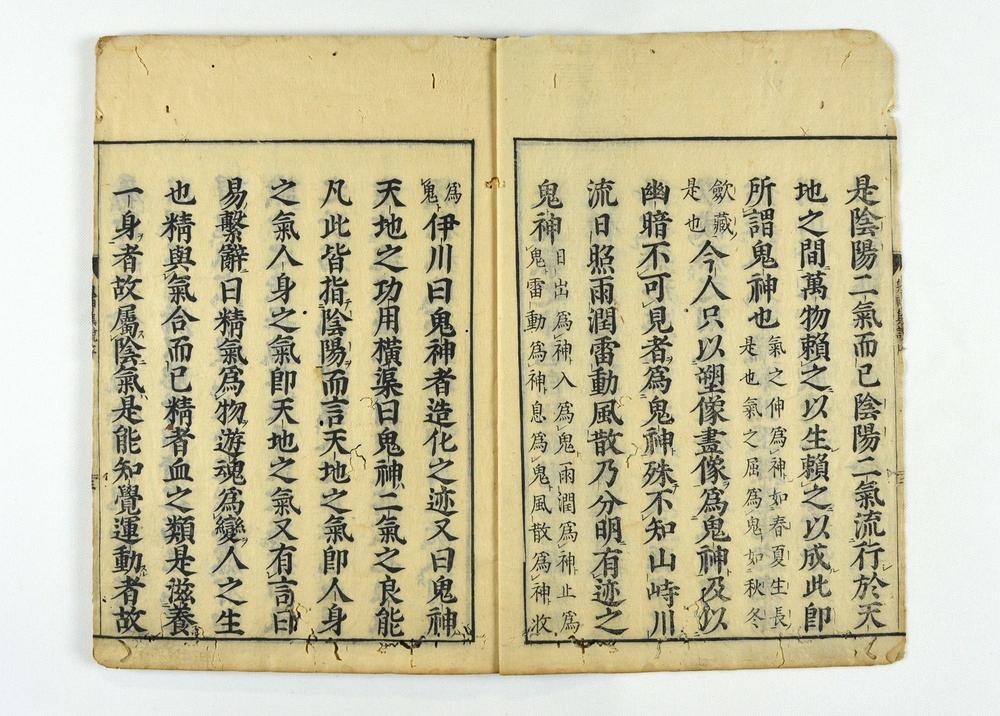 是陰陽二氣而已陰陽二氣流行於天
地之間萬物賴之以生賴之以成此即
所謂鬼神也
氣之伸爲神如春夏生長
是也氣之屈爲鬼如秋冬
歛藏
是也
今人只以塑像畫像爲鬼神及以
幽暗不可見者爲鬼神殊不知山峙川
流日照雨潤雷動風散乃分明有迹之
鬼神
日出爲神入爲鬼雨潤爲神止爲
鬼雷動爲神息爲鬼風散爲神收
爲
鬼
伊川曰鬼神者造化之迹又曰鬼神
天地之功用橫渠曰鬼神二氣之良能
凡此皆指陰陽而言天地之氣即人身
之氣人身之氣即天地之氣又有言曰
易繫辭曰精氣爲物遊魂爲變人之生
也精與氣合而已精者血之類是滋養
一身者故屬陰氣是能知覺運動者故